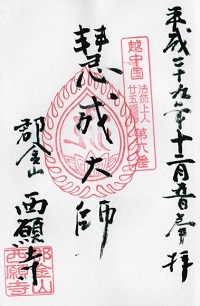 平成二十九年十二月 拝
越中国
法然上人
廿五霊場
第六番
慧成大師
郡金山
西願寺
郡金山
西願寺